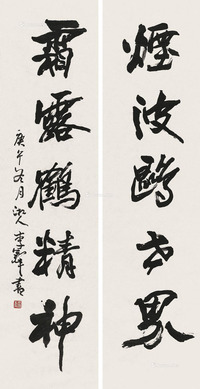 煙波鷗世界
霜露鶴精神
庚午冬月